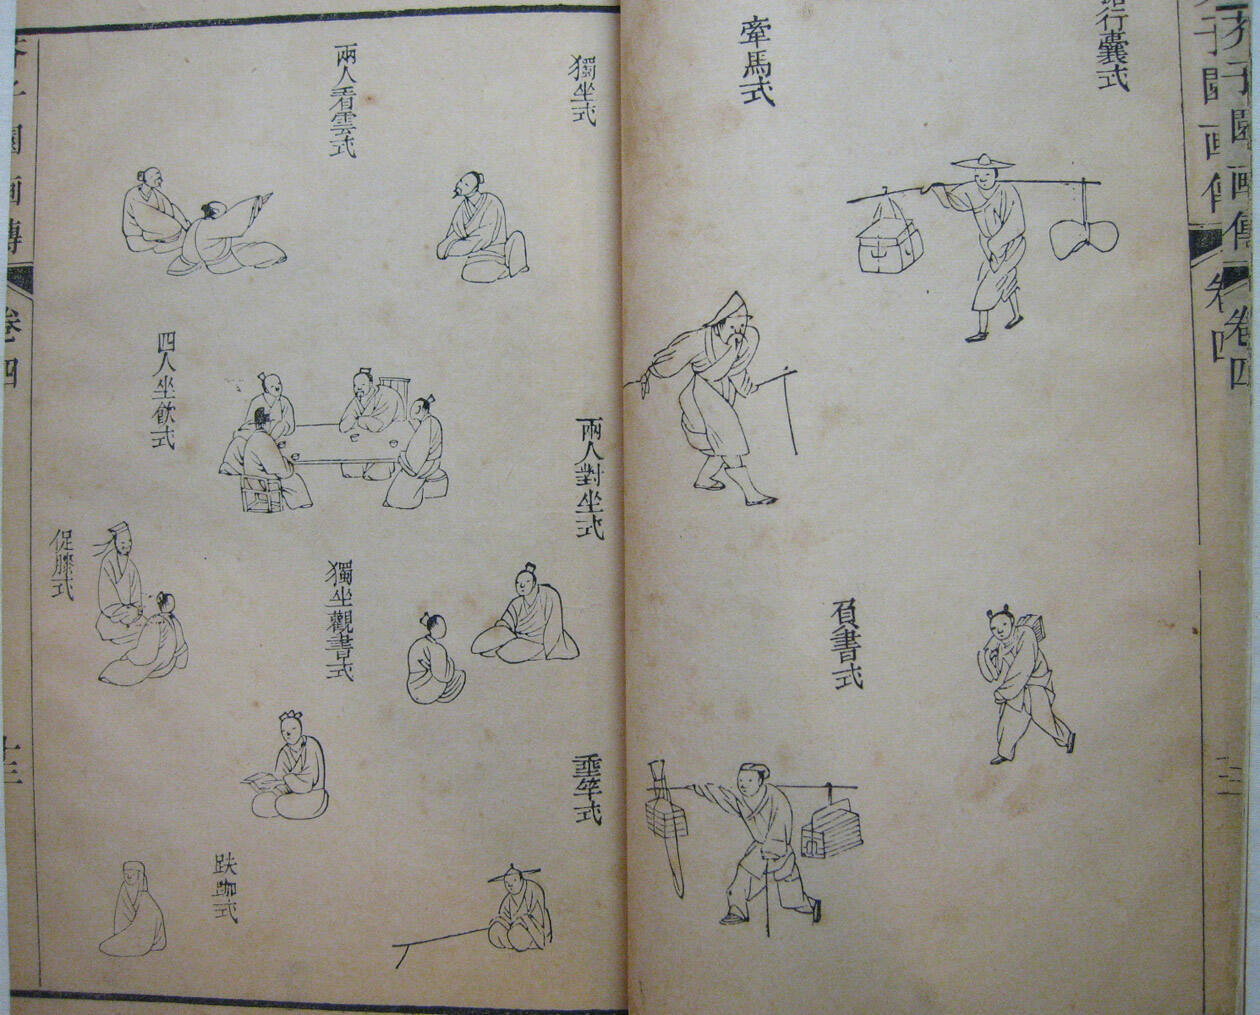 芥子園画傳
卷四
行囊式
牽馬式
負書式
獨坐式
兩人看雲式
兩人對坐式
四人坐飲式
獨坐觀書式
促膝式
垂竿式
趺跏式
芥子園画傳
卷四
十三